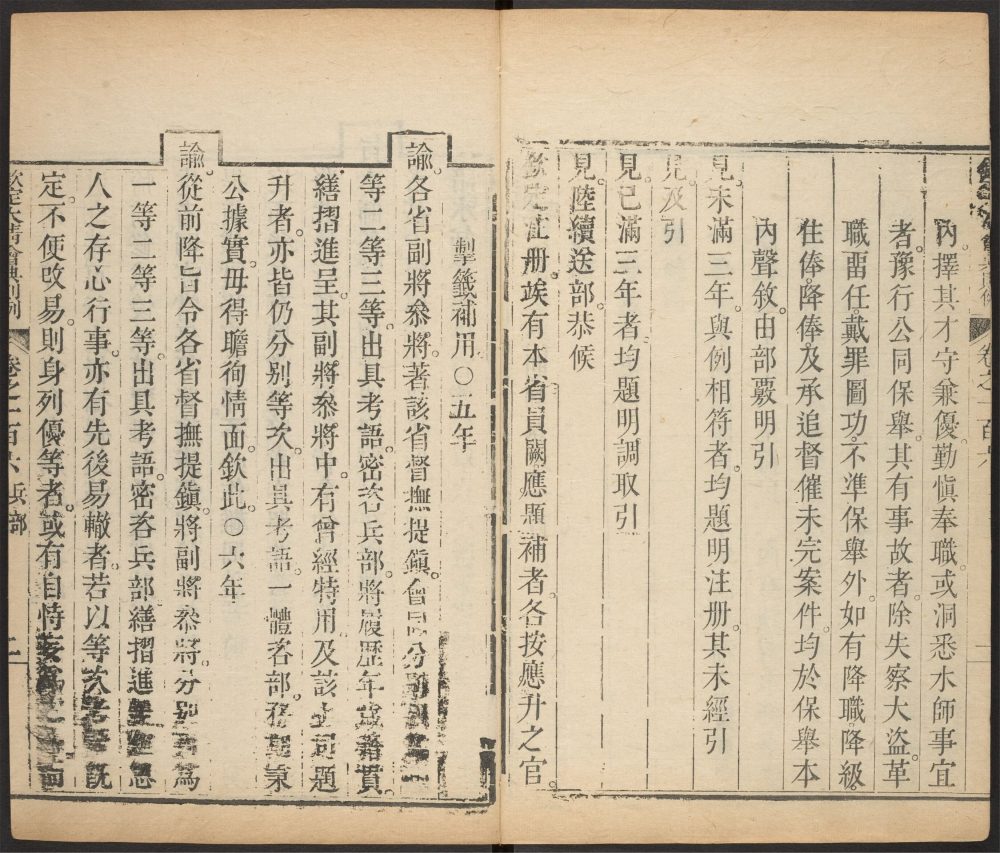 內擇其才守兼優勤愼奉職或洞悉水師事宜
者豫行公同保舉其有事故者除失察大盜革
職畱任戴罪圖功不準保舉外如有降職降級
住俸降俸及承追督催未完案件均於保舉本
內聲敘由部覈明引
見未滿三年與例相符者均題明注册其未經引
見及引
見已滿三年者均題明調取引
見陸續送部恭候
欽定注册竢有本省員闕應題補者各按應升之官
掣籤補用○五年
諭各省副將叅將著該省督撫提鎭會同分別
等二等三等出具考語密咨兵部將履歷年歲籍貫
繕摺進呈其副將叅將中有曾經特用及該上司題
升者亦皆仍分别等次出具考語一體咨部務期秉
公據實毋得瞻徇情面欽此○六年
諭從前降旨令各省督撫提鎭將副將叅將分别爲
一等二等三等出具考語密咨兵部繕摺進
人之存心行事亦有先後易轍者若以等次旣
定不便改易則身列優等者或有自恃妄爲之
欽定大清會典則例 卷之一百六 兵部 二